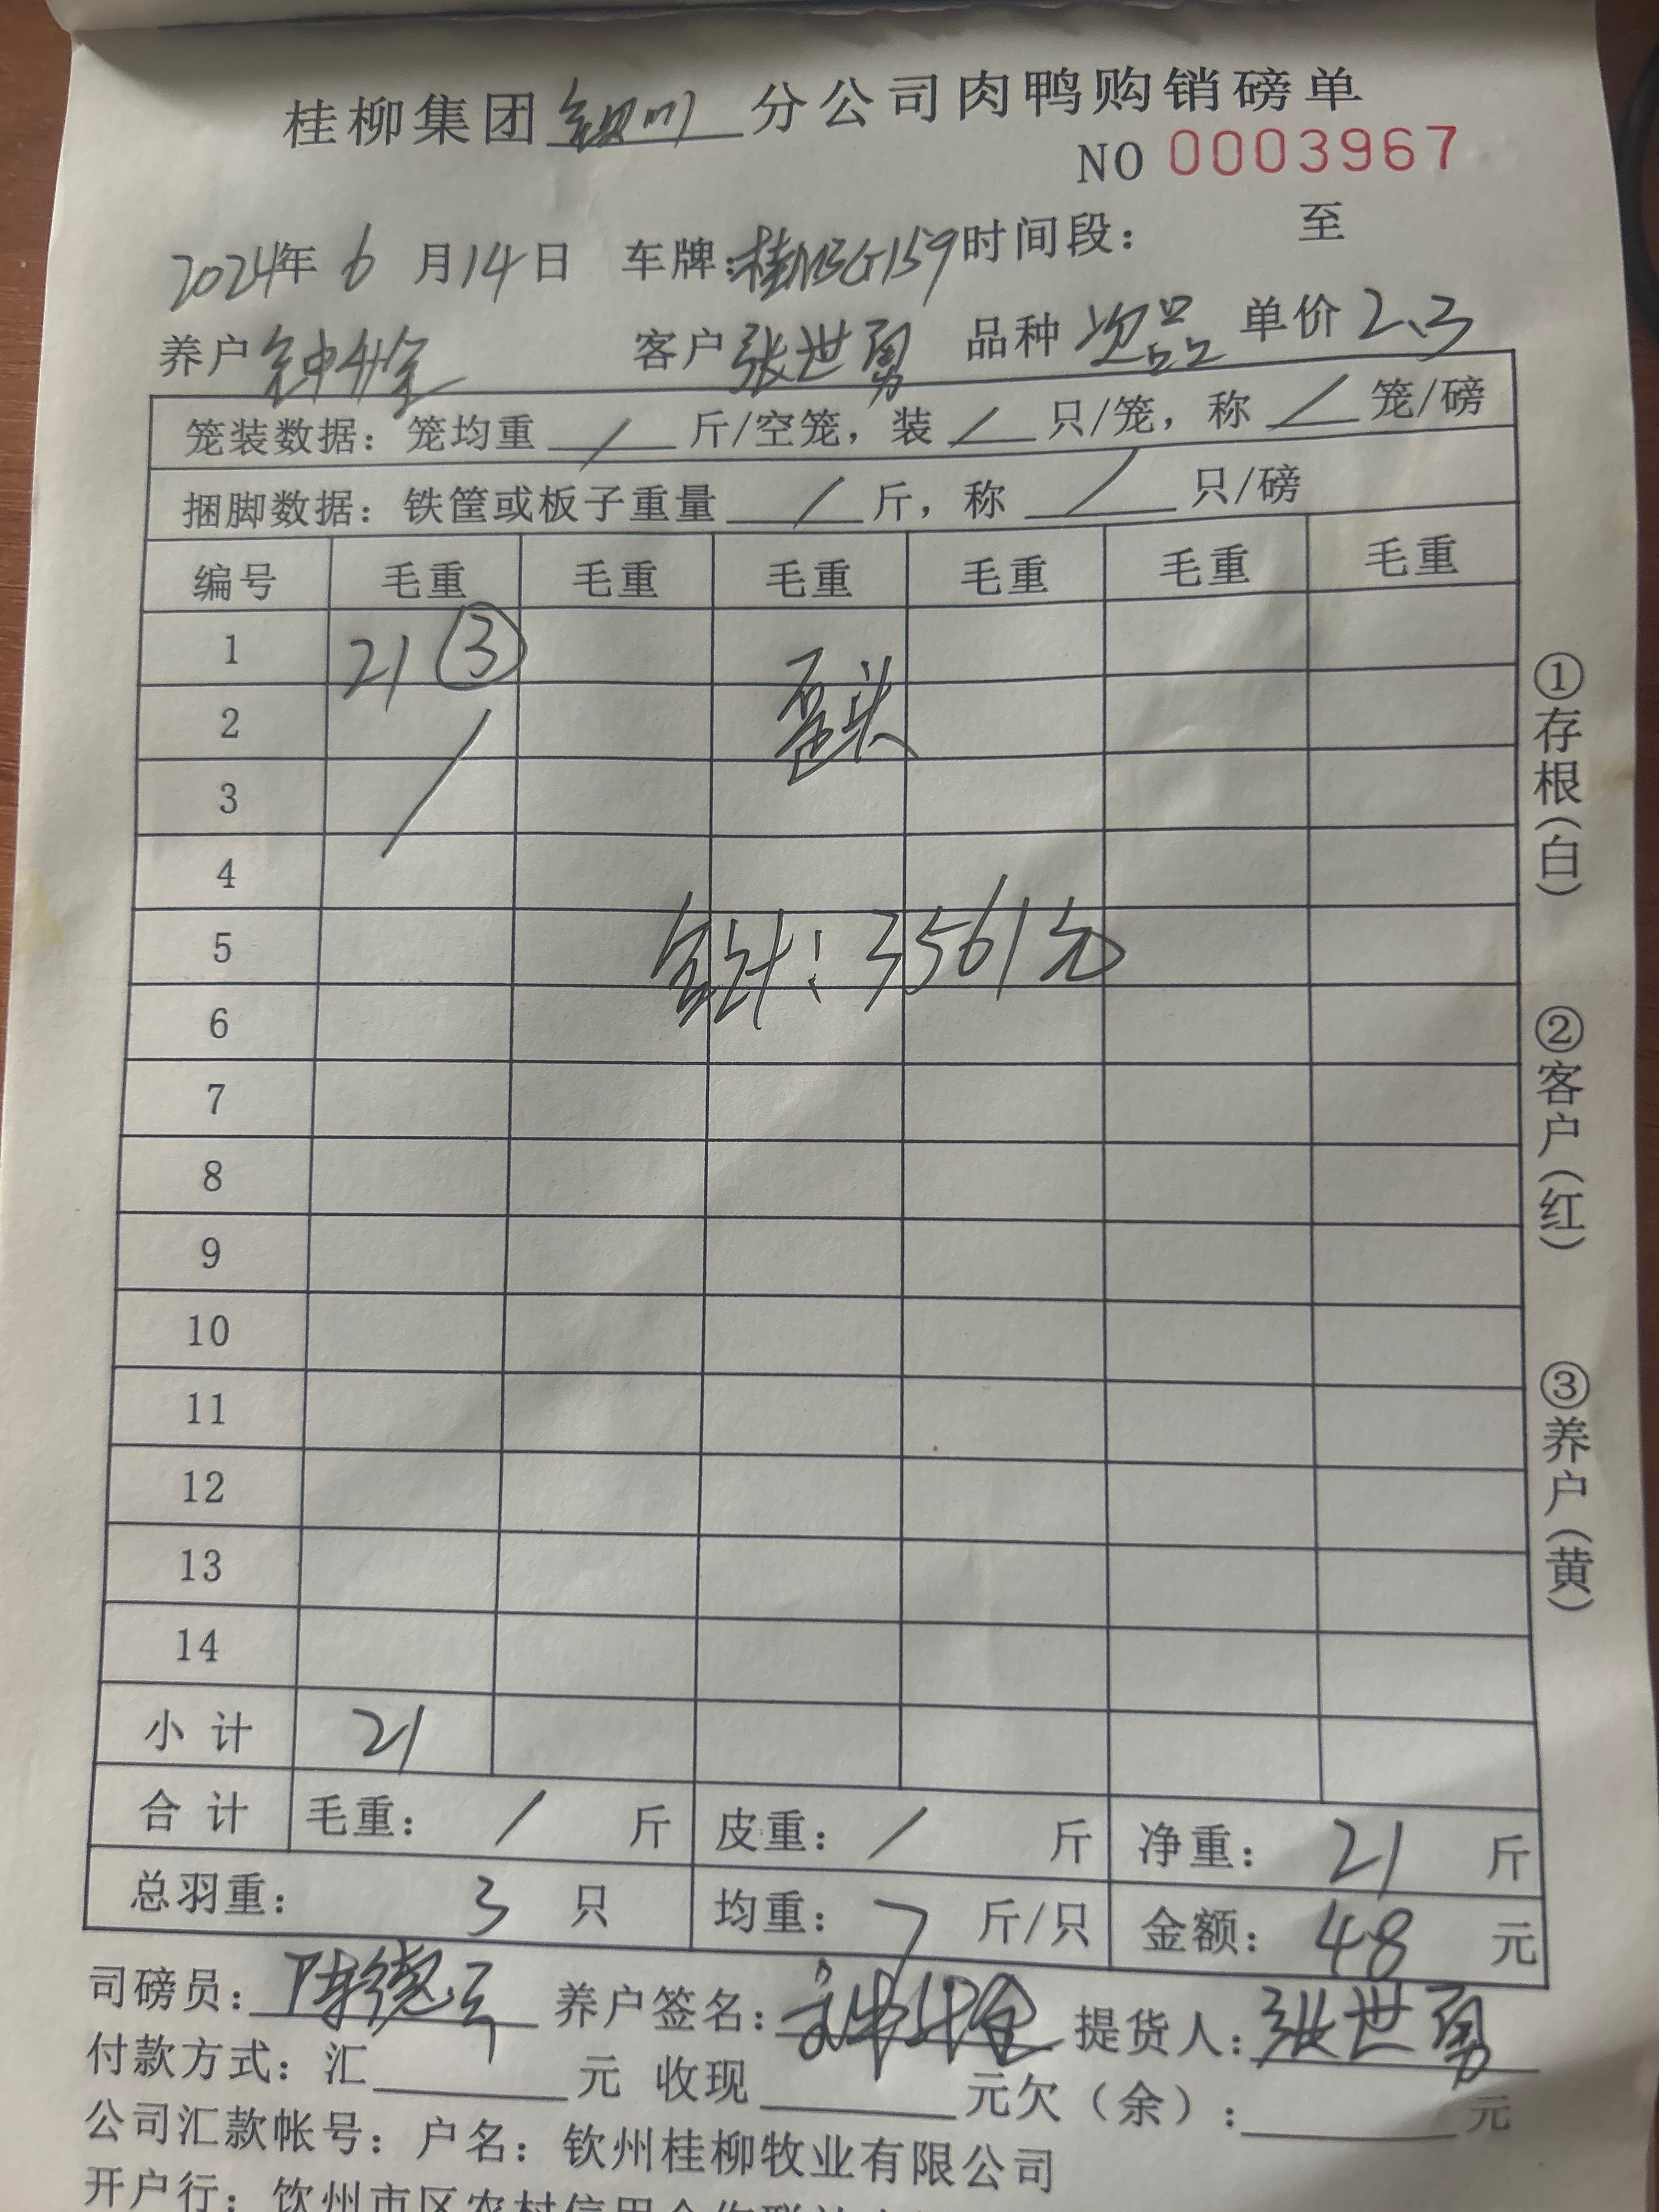 桂柳集团 分公司肉鸭购销磅单
NO 0003967
2024年 6 月14日 车牌:桂NBG159 时间段: 至
养户 客户 张世勇 品种 次品 单价 2.3
笼装数据: 笼均重 / 斤/空笼, 装 / 只/笼, 称 / 笼/磅
捆脚数据: 铁筐或板子重量 / 斤, 称 / 只/磅
编号 毛重 毛重 毛重 毛重 毛重 毛重
1 21 ③
2
3
歪头
4
5
合计: 3561元
6
7
8
9
10
11
12
13
14
小计 21
合计 毛重: / 斤 皮重: / 斤 净重: 21 斤
总羽重: 3 只 均重: 7 斤/只 金额: 48 元
司磅员: 养户签名: 提货人: 张世勇
付款方式: 汇 元 收现 元欠(余): 元
公司汇款帐号: 户名: 钦州桂柳牧业有限公司
开户行: 钦州市区农村信用合作联社
①存根(白)
②客户(红)
③养户(黄)